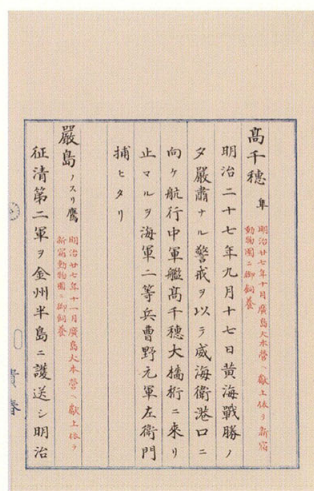 高千穗 隼
明治廿七年十月廣島大本營ヘ獻上依テ新宿
動物園ニ御飼養
明治二十七年九月十七日黄海戰勝ノ
夕嚴肅ナル警戒ヲ以テ威海衛港口ニ
向ケ航行中軍艦高千穗大檣桁ニ來リ
止マルヲ海軍二等兵曹野元軍左衛門
捕ヒタリ
嚴島 ノスリ鷹
明治廿七年十一月廣島大本營ヘ獻上依テ
新宿動物園ニ御飼養
征清第二軍ヲ金州半島ニ護送シ明治